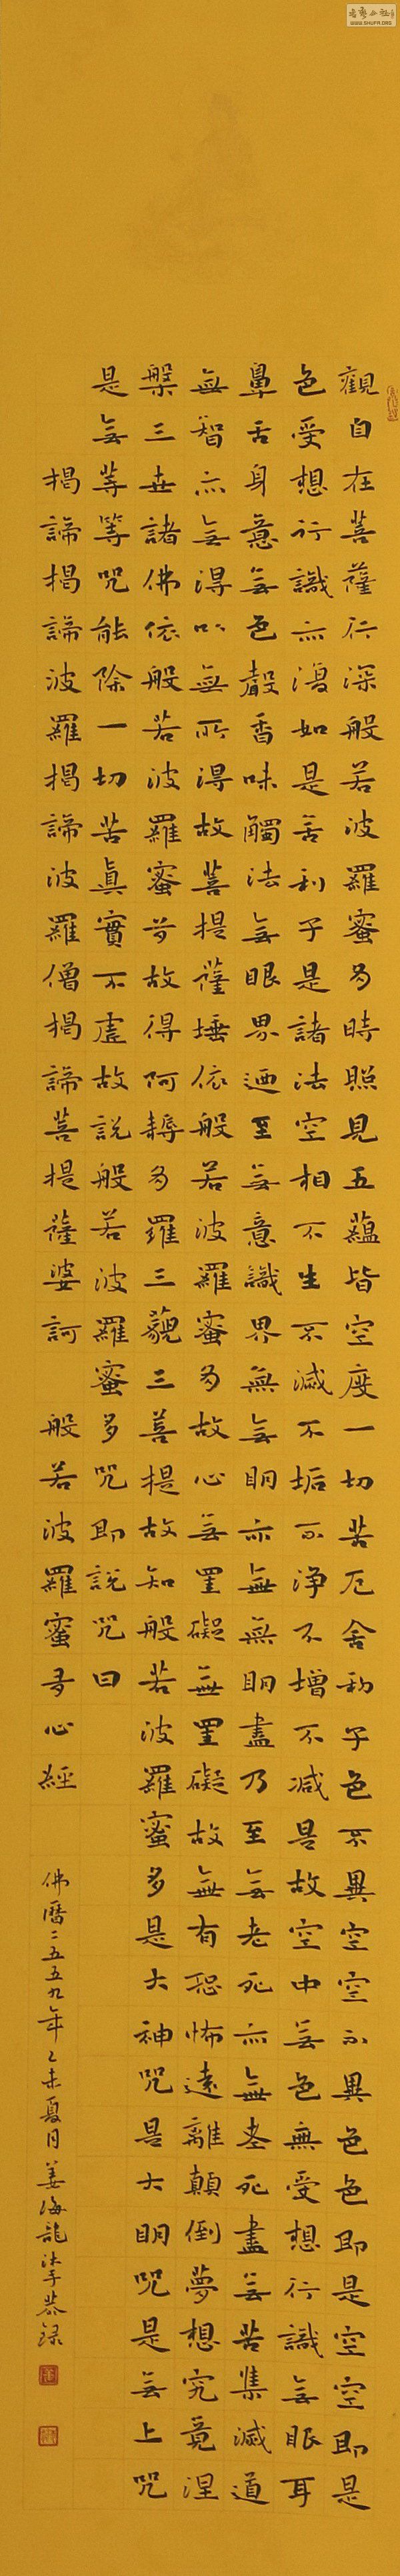 觀自在菩薩行深般若波羅蜜多時照見五蘊皆空度一切苦厄舍利子色不異空空不異色色即是空空即是
色受想行識亦復如是舍利子是諸法空相不生不滅不垢不淨不增不減是故空中無色無受想行識無眼耳
鼻舌身意無色聲香味觸法無眼界迺至無意識界無無明亦無無明盡乃至無老死亦無老死盡無苦集滅道
無智亦無得以無所得故菩提薩埵依般若波羅蜜多故心無罣礙無罣礙故無有恐怖遠離顛倒夢想究竟涅
槃三世諸佛依般若波羅蜜多故得阿耨多羅三藐三菩提故知般若波羅蜜多是大神咒是大明咒是無上咒
是無等等咒能除一切苦眞實不虛故說般若波羅蜜多咒即說咒曰
揭諦揭諦波羅揭諦波羅僧揭諦菩提薩婆訶 般若波羅蜜多心經
佛曆二五五九年乙未夏月姜海龍沐手恭録
WWW.SHUFA.ORG